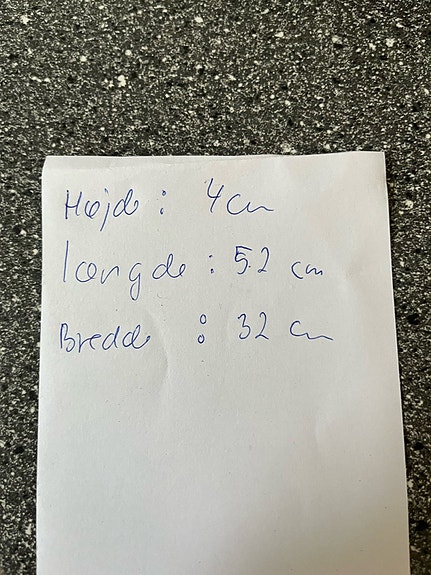 Højde : 4 cm
længde : 52 cm
Bredde : 32 cm